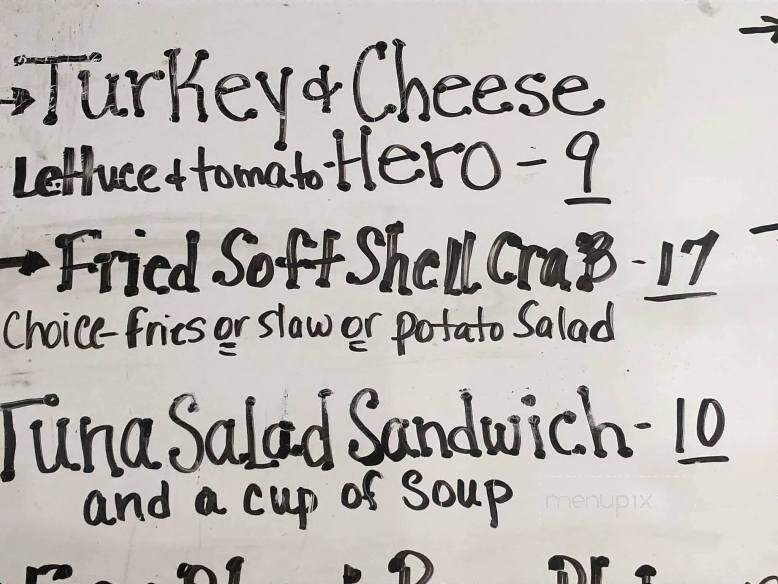 →Turkey & Cheese
Lettuce & tomato Hero - 9
→ Fried Soft Shell CraB - 17
Choice - fries or slaw or potato Salad
Tuna Salad Sandwich - 10
and a cup of Soup
menupix